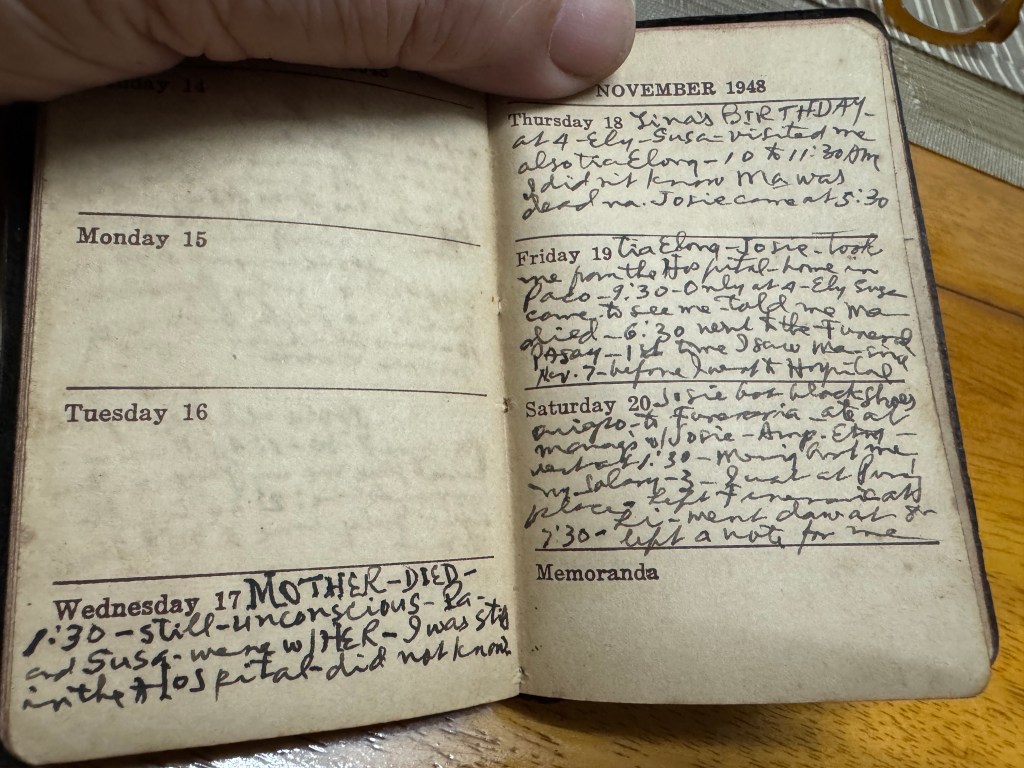 14
Monday 15
Tuesday 16
Wednesday 17 MOTHER-DIED-
1:30-still-unconscious-Pa-
and Susa-were w/HER-I was still
in the Hospital-did not know.
NOVEMBER 1948
Thursday 18 BIRTHDAY-
at 4-Ely-Susa-visited me
also tia Elong-10 to 11:30 AM
I did n't know Ma was
dead na. Josie came at 5:30
Friday 19 tia Elong-Josie-took
me from the Hospital-home in
Paco-9:30-Only at 4-Ely Susa
came to see me-told me Ma
died-6:30 went to the Funeral
PAsay-1st time I saw Ma-since
Nov. 7-before I went to Hospital
Saturday 20 Josie black shoes
to Funeraria ate at
w/Josie-Amp.
went at 1:30-
my salary-3- at
place left Funeraria at
went at 8-
7:30- left a note for me
Memoranda